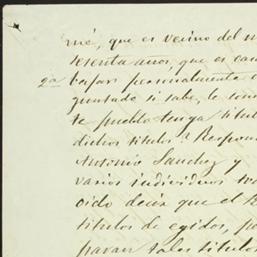 mé, que es vecino del
sesenta años, que es
2a bajar personalmente
guntado si sabe, le
te pueblo tenga
dichos titulos? Respon
Antonio Sanchez y
varios individuos
oido decir que el
titulos de egidos,
tales titulos